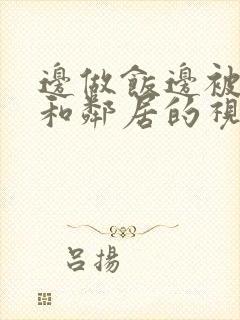 邊做飯邊被
和鄰居的視
呂揚